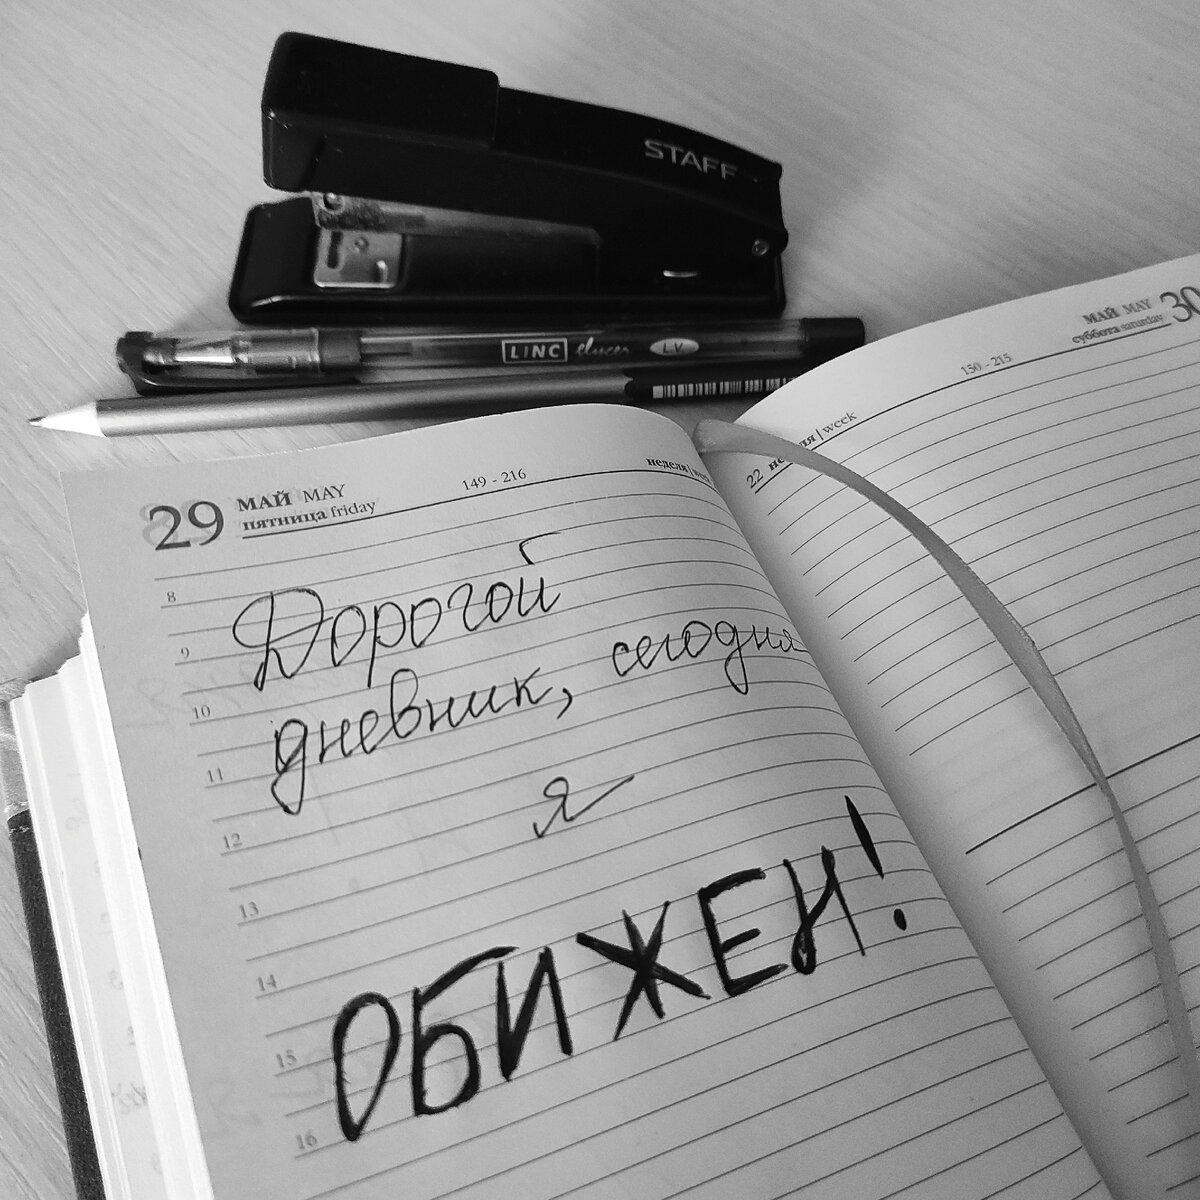 STAFF
LINC elucer L.V.
МАЙ MAY 30
суббота saturday
150 - 215
22 неделя | week
29 МАЙ MAY
пятница friday
149 - 216
неделя |
8
Дорогой
9
дневник, сегодня
10
11
я
12
13
ОБИЖЕН!
14
15
16